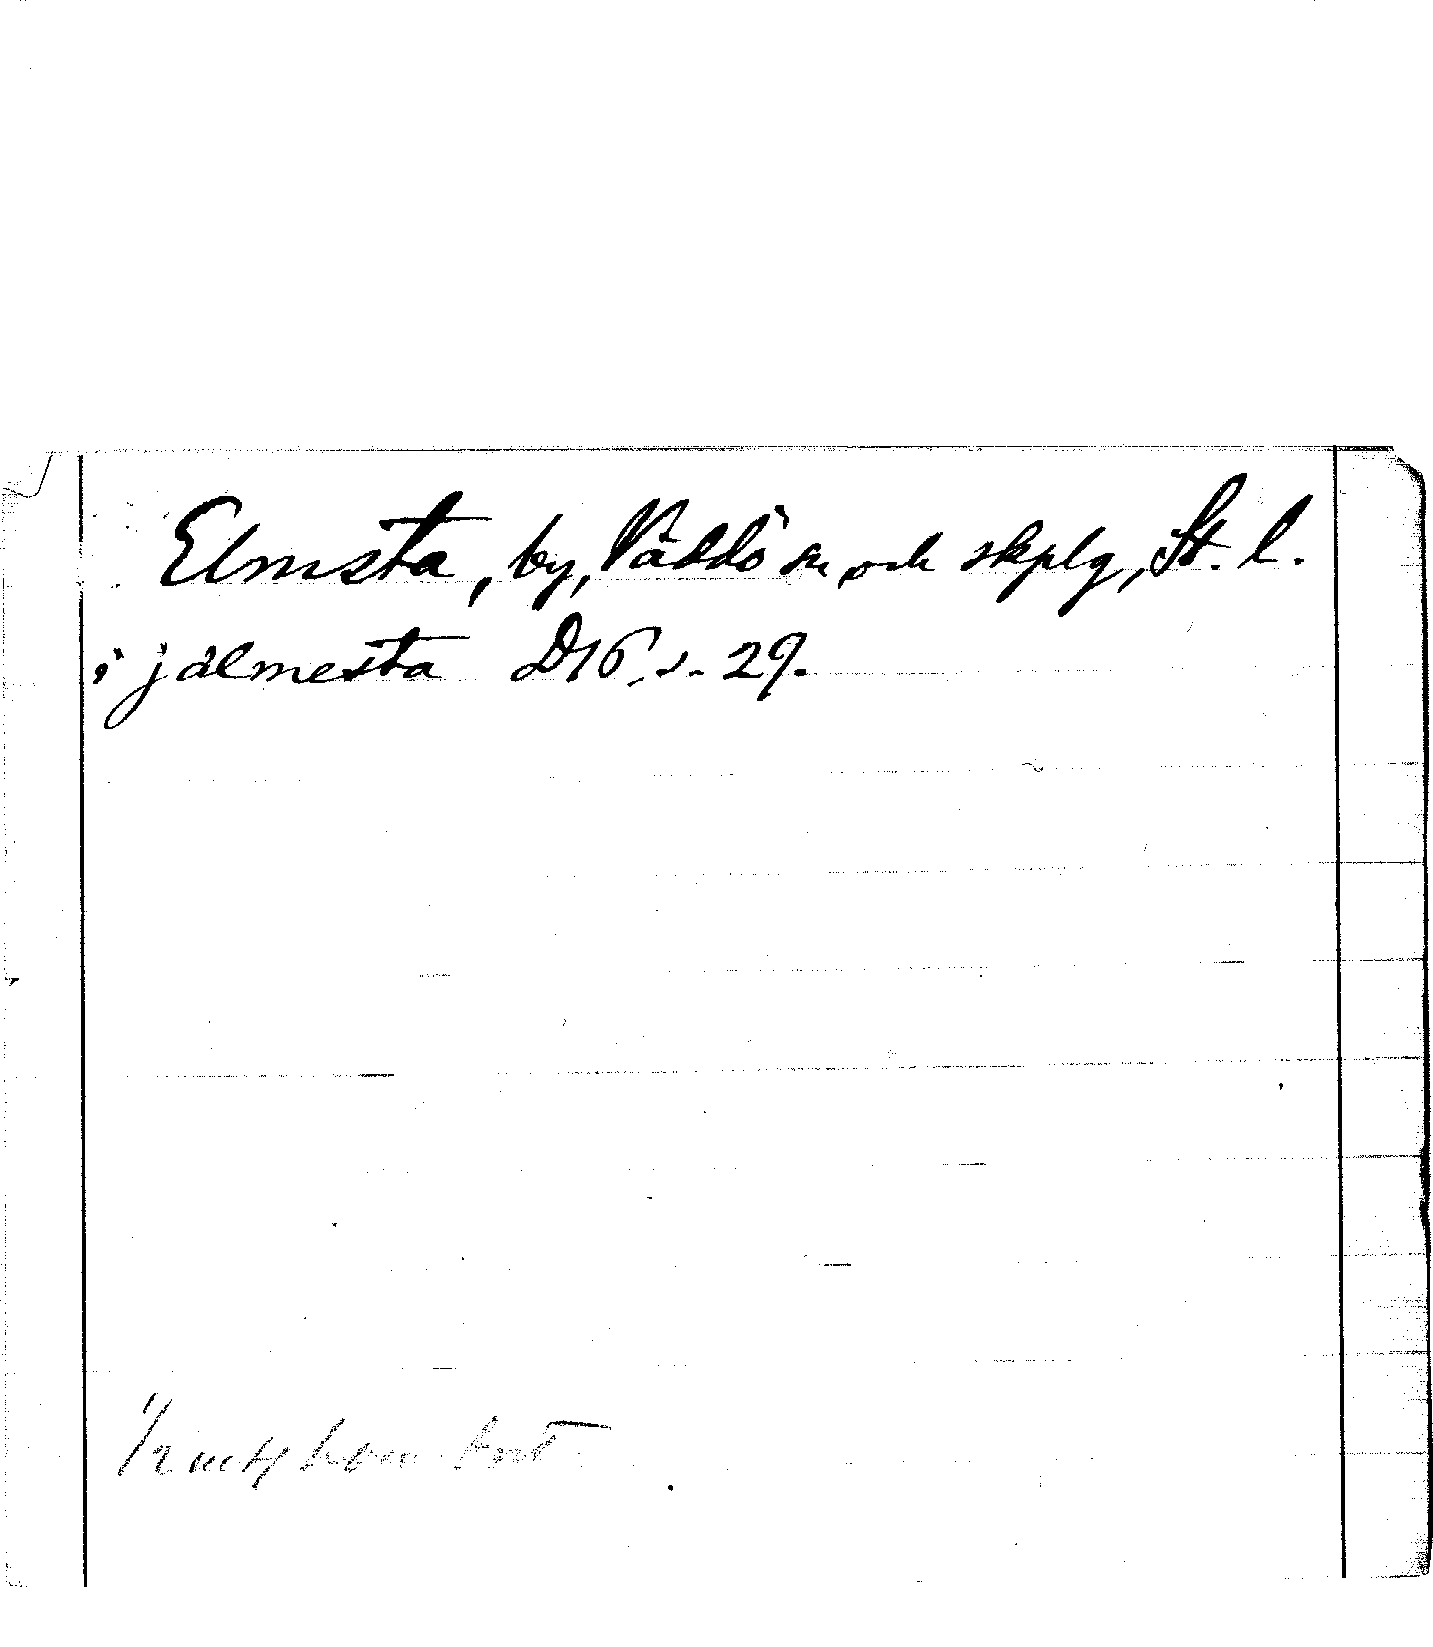 Elmsta, by, Väddö sn och skplg, St. l.
i jälmesta D16, s. 29.
1/2